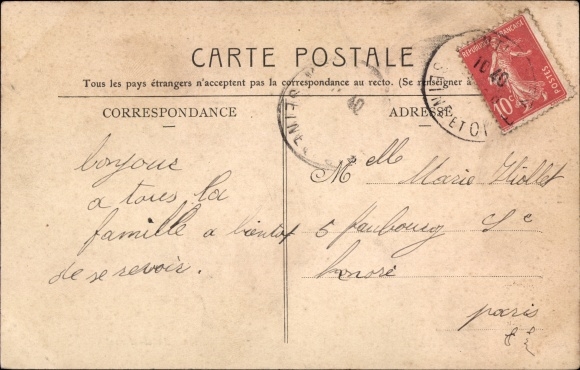 CARTE POSTALE
Tous les pays étrangers n'acceptent pas la correspondance au recto. (Se renseigner à
CORRESPONDANCE
ADRESSE
REPUBLIQUE FRANÇAISE
POSTES
10c
SEINE-ET-OI
SEINE
10
40
bonjour
a tous la
famille a bientot
de se revoir.
Melle Marie Viollet
5 faubourg St
honoré
paris
8e